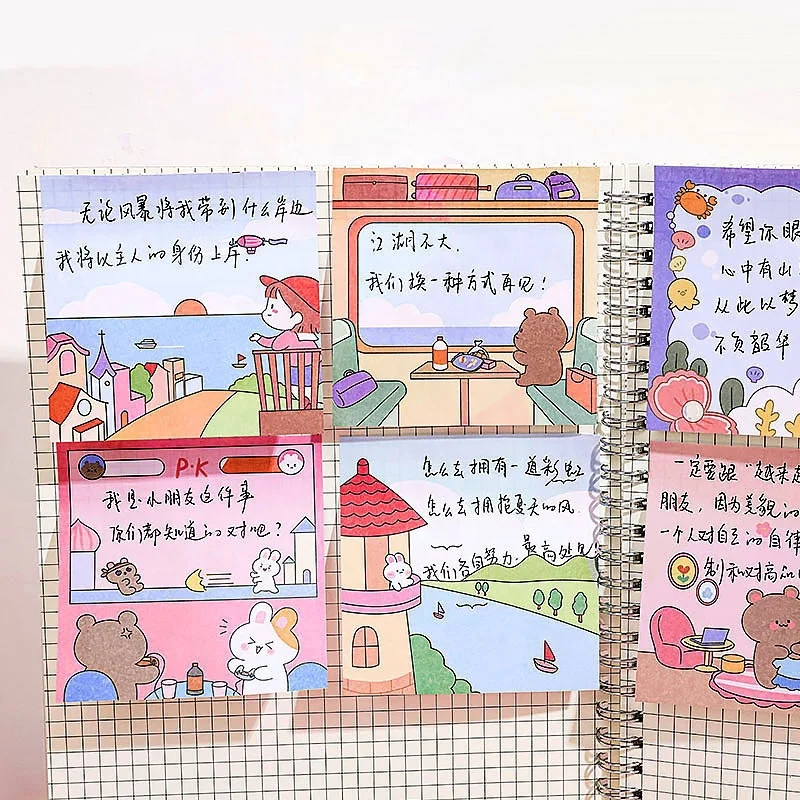 无论风暴将我带到什么岸边
我将以主人的身份上岸.
江湖不大.
我们换一种方式再见!
希望你眼
心中有山
从此以梦
不负韶华
P·K
我是小朋友这件事
你们都知道的对吧?
怎么去拥有一道彩虹
怎么去拥抱夏天的风.
我们各自努力.最高处见
一定要跟"越来越
朋友,因为美貌的
一个人对自己的自律
制和对高